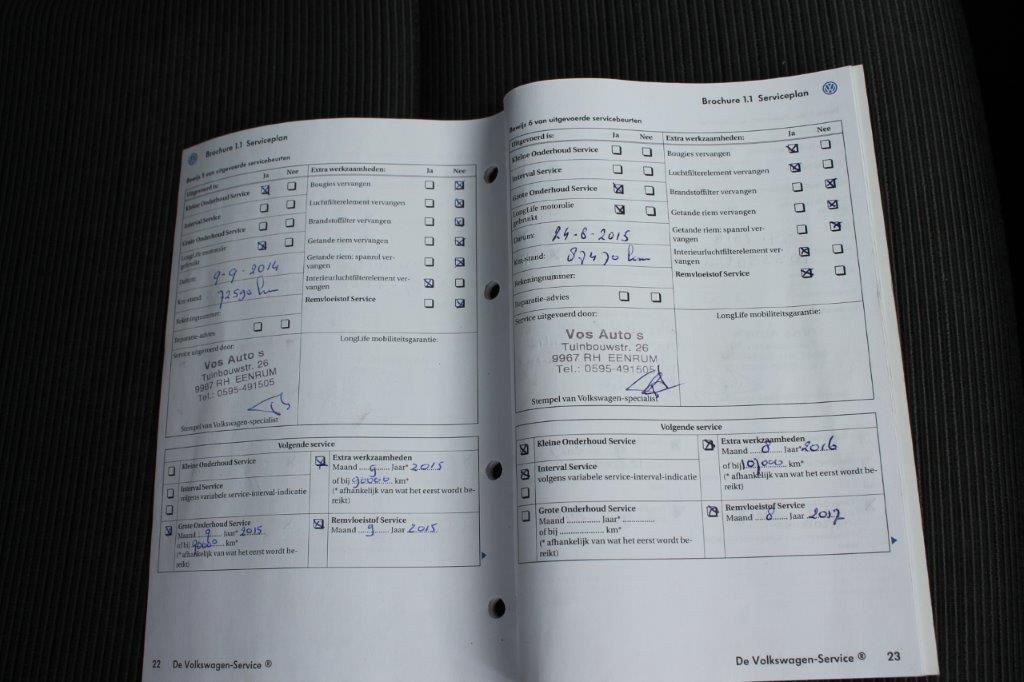 Brochure 1.1 Serviceplan
Bewijs 5 van uitgevoerde servicebeurten
Uitgevoerd is: Ja Nee
Kleine Onderhoud Service
Interval Service
Grote Onderhoud Service
LongLife motorolie
gebruikt
Datum: 9-9-2014
Km-stand: 72590 km
Rekeningnummer:
Reparatie-advies
Extra werkzaamheden: Ja Nee
Bougies vervangen
Luchtfilterelement vervangen
Brandstoffilter vervangen
Getande riem vervangen
Getande riem: spanrol ver-
vangen
Interieurluchtfilterelement ver-
vangen
Remvloeistof Service
Service uitgevoerd door:
Vos Auto's
Tuinbouwstr. 26
9967 RH EENRUM
Tel.: 0595-491505
Stempel van Volkswagen-specialist
LongLife mobiliteitsgarantie:
Volgende service
Kleine Onderhoud Service
Interval Service
volgens variabele service-interval-indicatie
Grote Onderhoud Service
Maand 9 Jaar* 2015
of bij 90000 km*
(* afhankelijk van wat het eerst wordt be-
reikt)
Extra werkzaamheden
Maand 9 Jaar* 2015
of bij 90000 km*
(* afhankelijk van wat het eerst wordt be-
reikt)
Remvloeistof Service
Maand 9 Jaar 2015
22 De Volkswagen-Service ®
Brochure 1.1 Serviceplan
Bewijs 6 van uitgevoerde servicebeurten
Uitgevoerd is: Ja Nee
Kleine Onderhoud Service
Interval Service
Grote Onderhoud Service
LongLife motorolie
gebruikt
Datum: 24-6-2015
Km-stand: 87470 km
Rekeningnummer:
Reparatie-advies
Extra werkzaamheden: Ja Nee
Bougies vervangen
Luchtfilterelement vervangen
Brandstoffilter vervangen
Getande riem vervangen
Getande riem: spanrol ver-
vangen
Interieurluchtfilterelement ver-
vangen
Remvloeistof Service
Service uitgevoerd door:
Vos Auto's
Tuinbouwstr. 26
9967 RH EENRUM
Tel.: 0595-491505
Stempel van Volkswagen-specialist
LongLife mobiliteitsgarantie:
Volgende service
Kleine Onderhoud Service
Interval Service
volgens variabele service-interval-indicatie
Grote Onderhoud Service
Maand ............... Jaar* ...............
of bij ..................... km*
(* afhankelijk van wat het eerst wordt be-
reikt)
Extra werkzaamheden
Maand 8 Jaar* 2016
of bij 107000 km*
(* afhankelijk van wat het eerst wordt be-
reikt)
Remvloeistof Service
Maand 8 Jaar 2017
De Volkswagen-Service ® 23